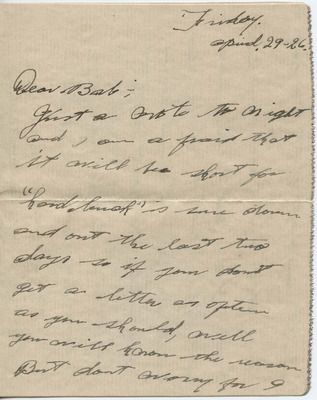 Friday.
april, 29-26.
Dear Bab:-
Just a note to night
and I am a fraid that
it will be short for
"hard luck" is sure down
and out the last two
days so if you dont
get a letter as often
as you should, well
you will know the reason
But dont worry for I